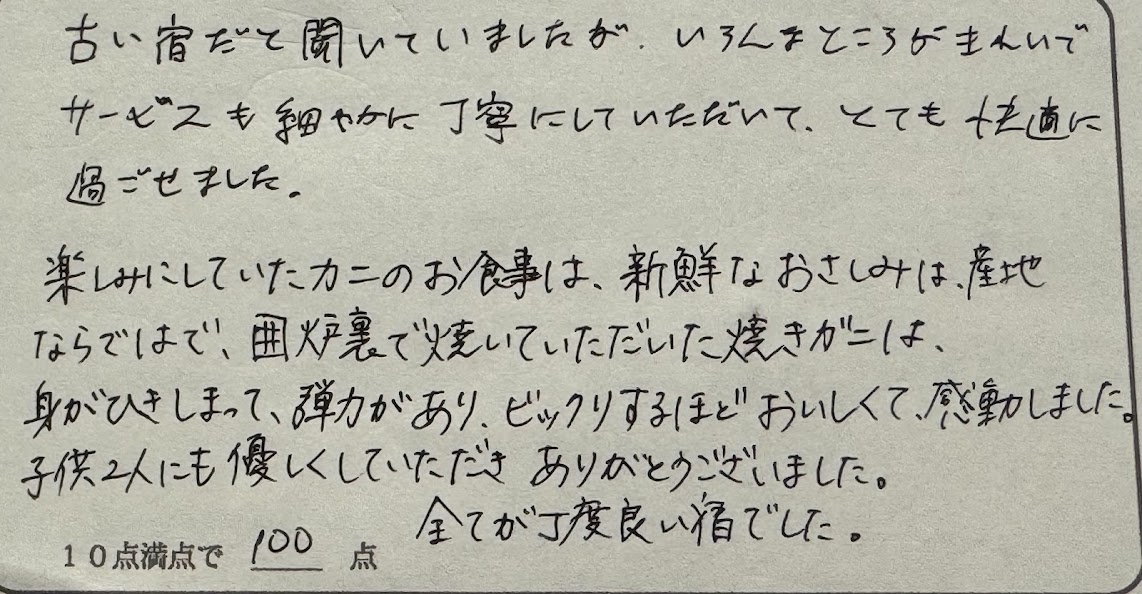 古い宿だと聞いていましたが、いろんなところがきれいで
サービスも細やかに丁寧にしていただいて、とても快適に
過ごせました。
楽しみにしていたカニのお食事は、新鮮なおさしみは、産地
ならではで、囲炉裏で焼いていただいた焼きガニは、
身がひきしまって、弾力があり、ビックリするほどおいしくて、感動しました。
子供2人にも優しくしていただき ありがとうございました。
全てが丁度良い宿でした。
10点満点で 100 点